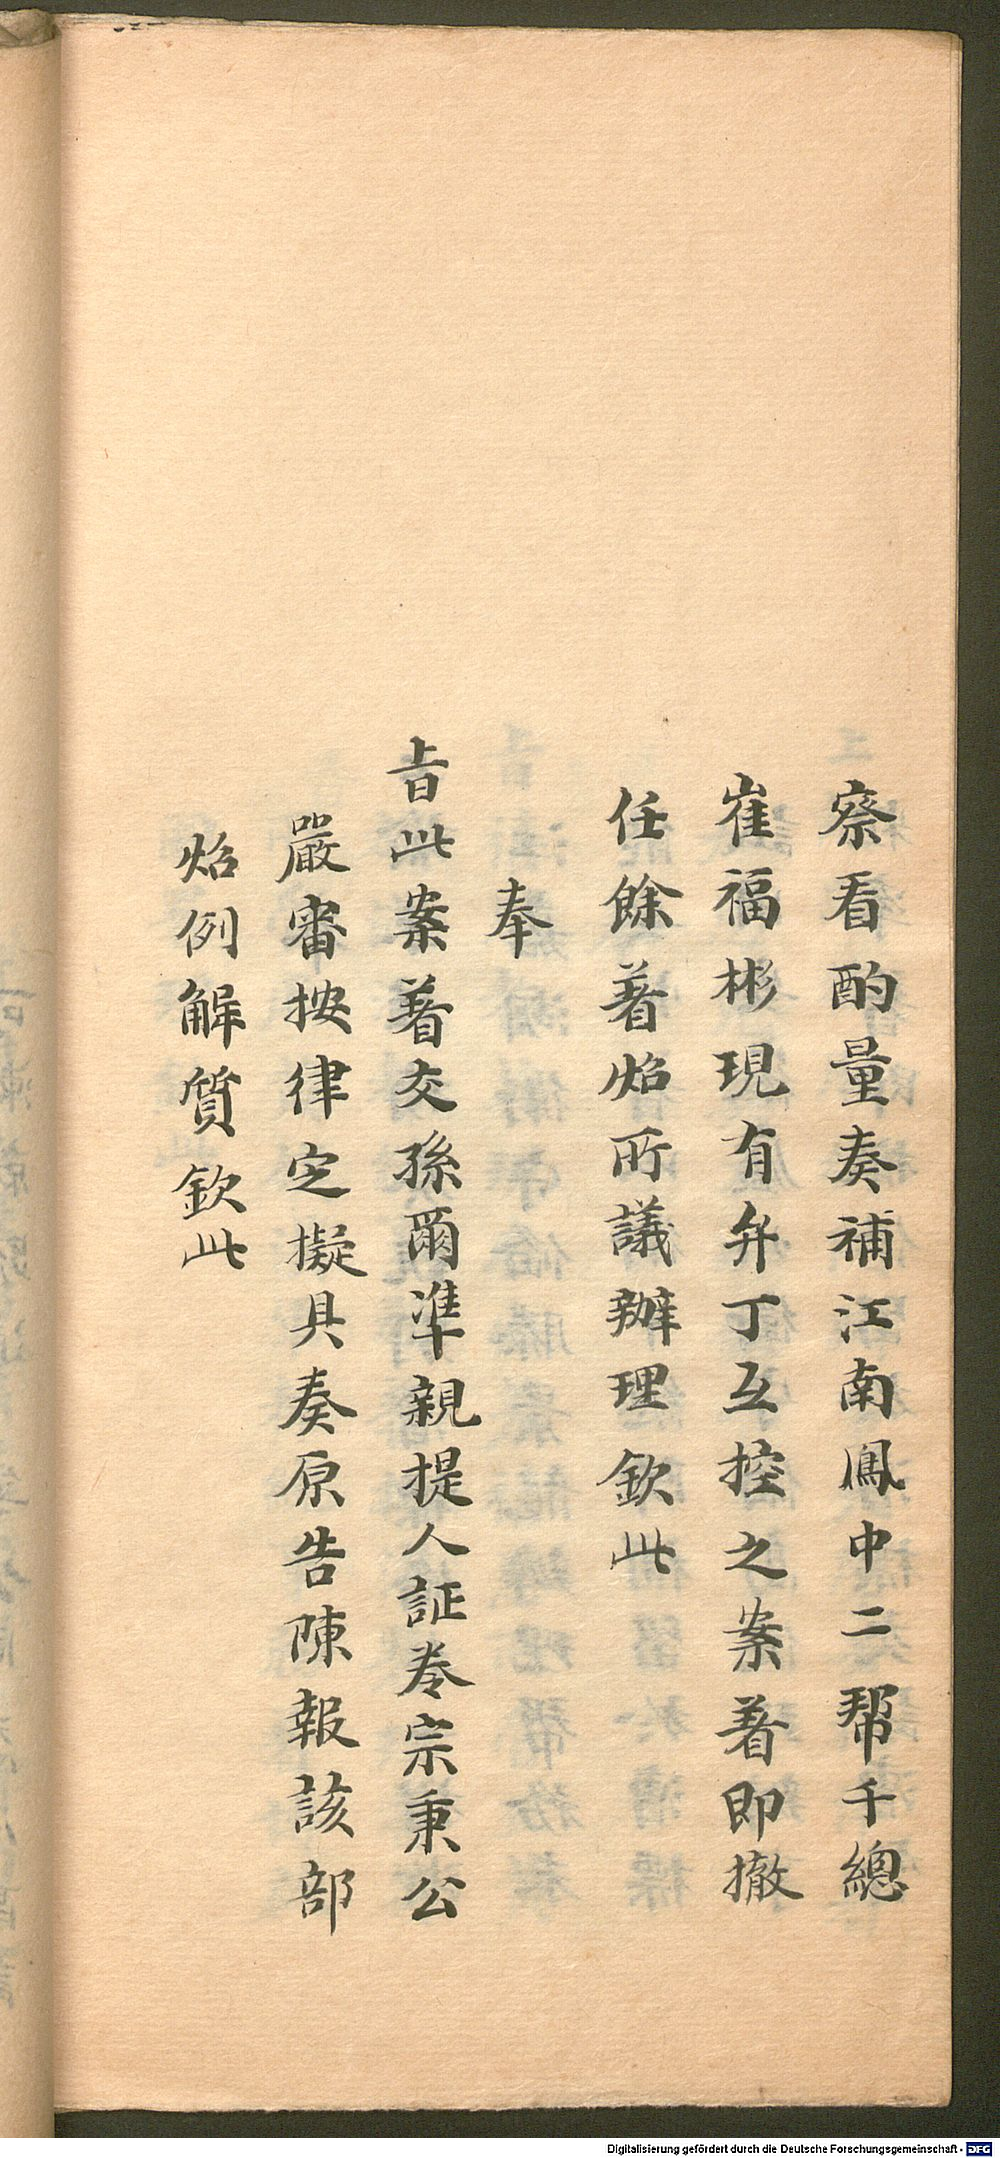 察看酌量奏補江南鳳中二帮千總
崔福彬現有弁丁互控之案著即撤
任餘著炤所議辦理欽此
奉
旨此案著交孫爾凖親提人証卷宗秉公
嚴審按律定擬具奏原告陳報該部
炤例解質欽此
Digitalisierung gefördert durch die Deutsche Forschungsgemeinschaft - DFG